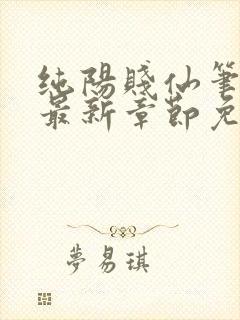 純陽賤仙筆
最新章節免
夢易琪